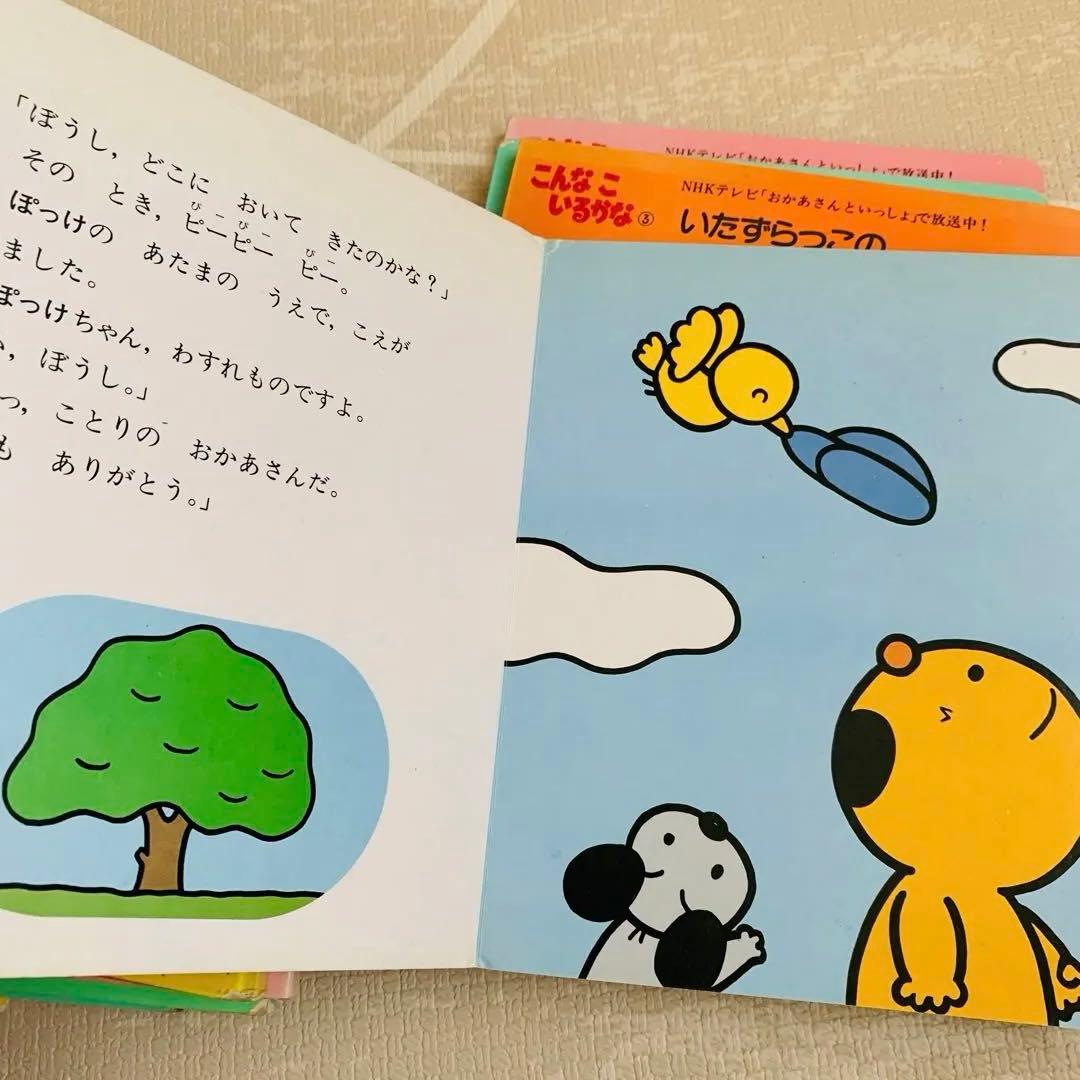 「ぼうし，どこに　おいて　きたのかな？」
その　とき，ピーピー　ピー。
びこびこ　びこ
ぽっけの　あたまの　うえで，こえが
ました。
ぽっけちゃん，わすれものですよ。
，ぼうし。」
っ，ことりの　おかあさんだ。
も　ありがとう。」
NHKテレビ「おかあさんといっしょ」で放送中！
こんなこ
いるかな③
NHKテレビ「おかあさんといっしょ」で放送中！
いたずらっこの